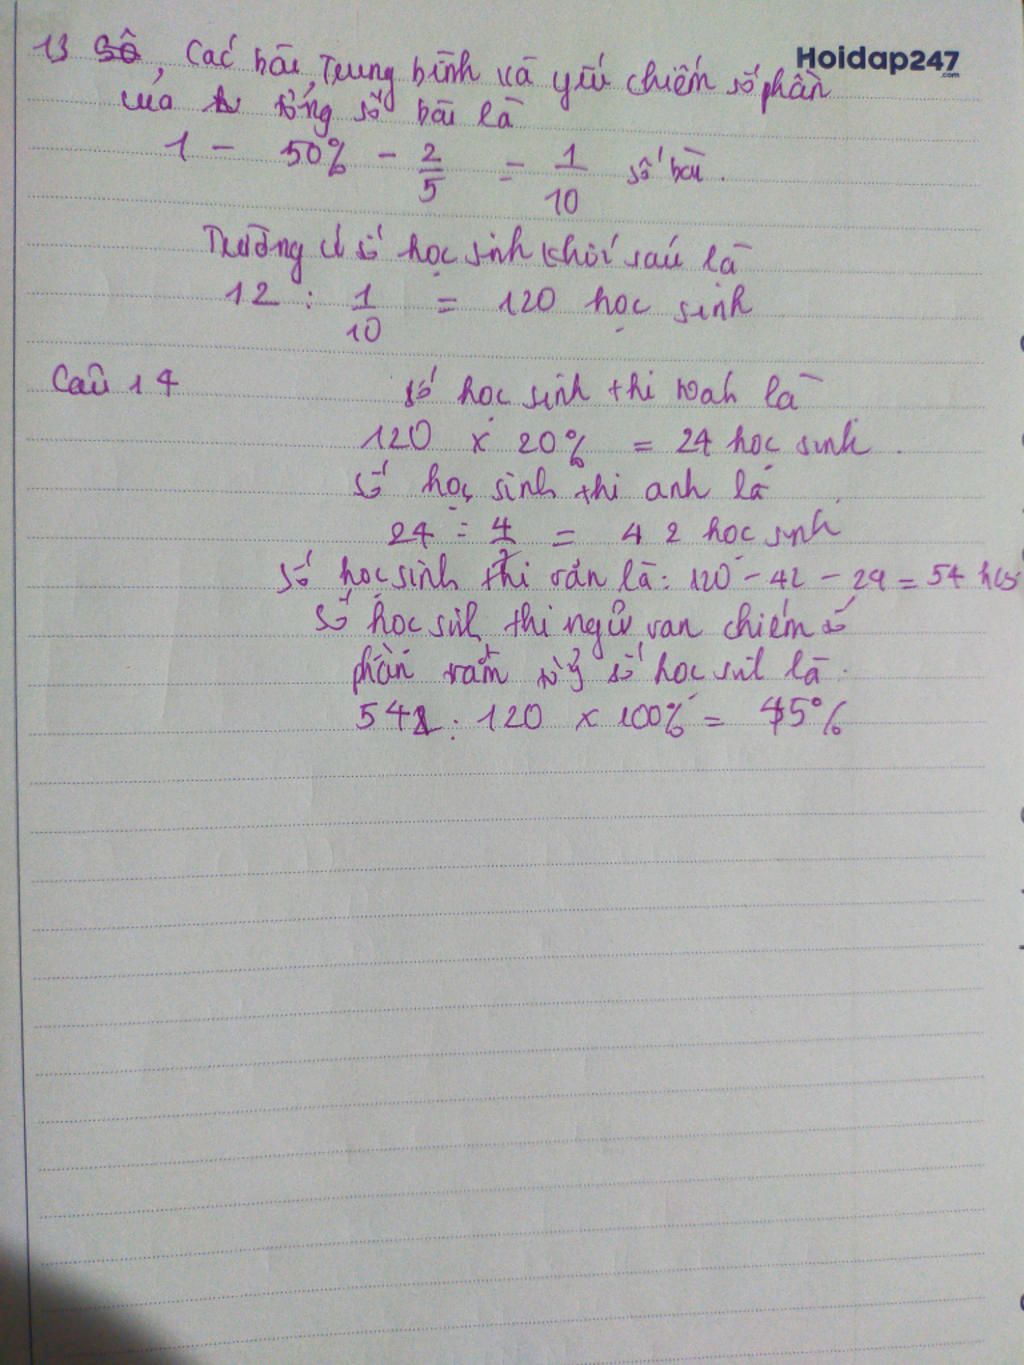 13 Số, Các bài Trung bình và yếu chiếm số phần
Hoidap247
.com
của tổng số bài là
1 - 50% - 2/5 = 1/10 số bài.
Trường có số học sinh khối sáu là
12 : 1/10 = 120 học sinh
Câu 14
số học sinh thi toán là
120 x 20% = 24 học sinh.
số học sinh thi anh là
24 : 4/7 = 42 học sinh
số học sinh thi văn là: 120 - 42 - 24 = 54 hs
Số học sinh thi ngữ văn chiếm số
phần trăm số học sinh là.
54 : 120 x 100% = 45%